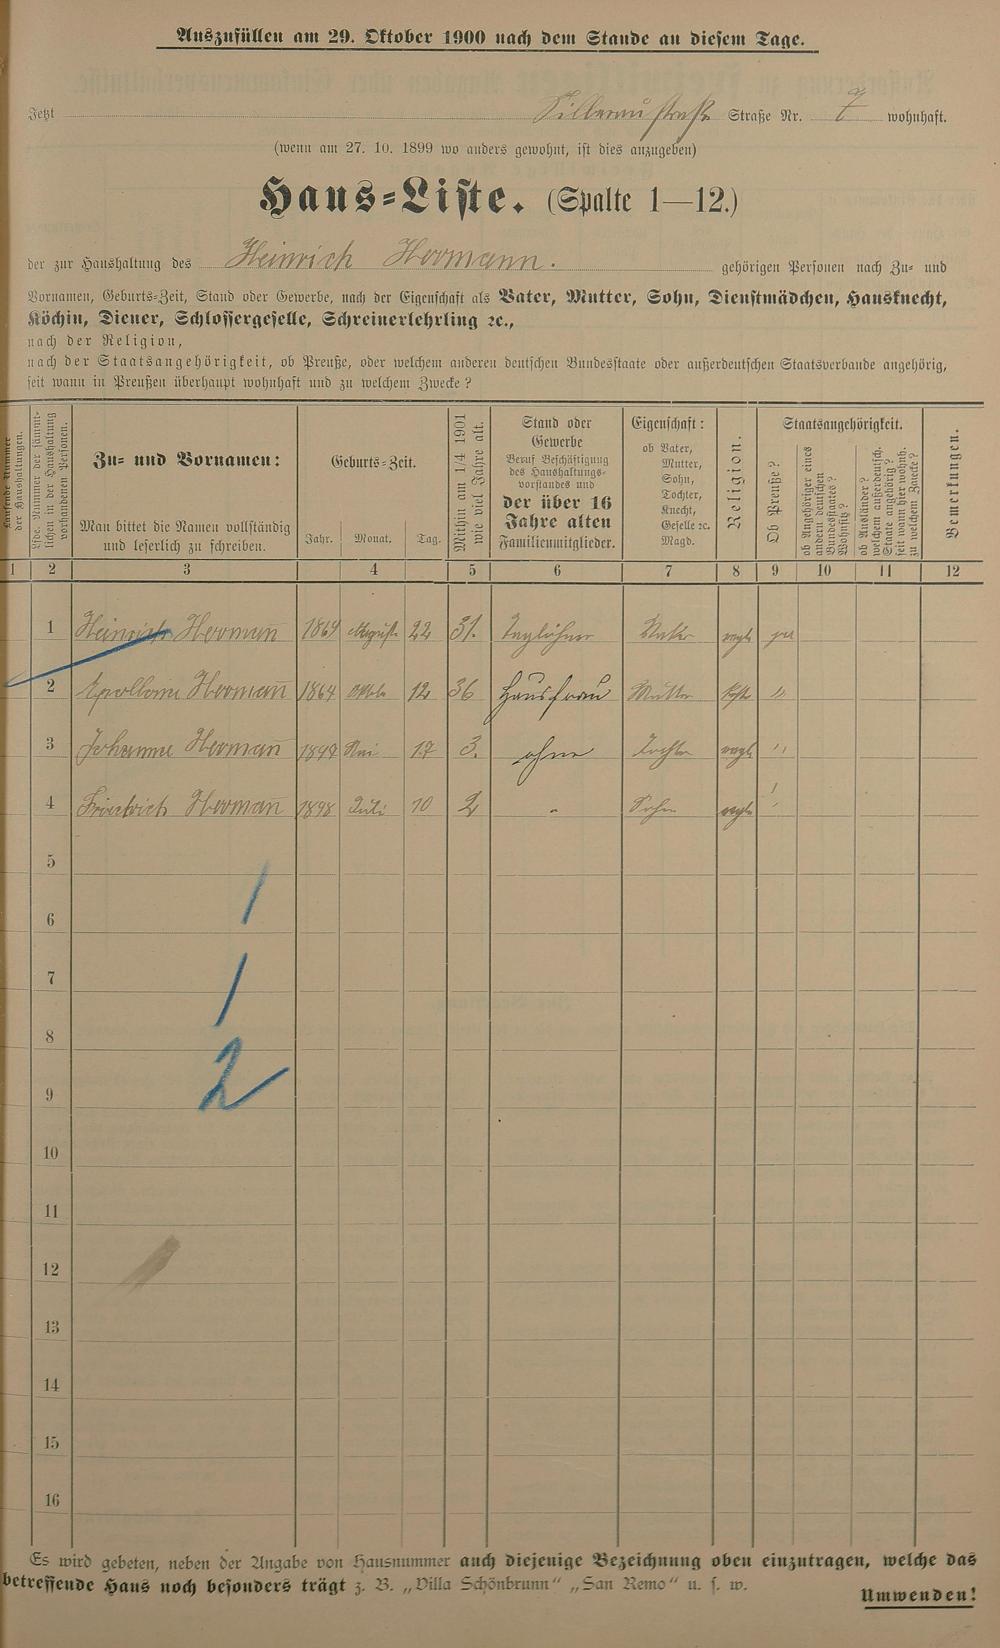 Auszufüllen am 29. Oktober 1900 nach dem Stande an diesem Tage.
Jetzt Straße Nr. 7 wohnhaft.
(wenn am 27. 10. 1899 wo anders gewohnt, ist dies anzugeben)
Haus-Liste. (Spalte 1—12.)
der zur Haushaltung des Heinrich Hermann. gehörigen Personen nach Zu- und
Vornamen, Geburts-Zeit, Stand oder Gewerbe, nach der Eigenschaft als Vater, Mutter, Sohn, Dienstmädchen, Hausknecht,
Köchin, Diener, Schlossergeselle, Schreinerlehrling ꝛc.,
nach der Religion,
nach der Staatsangehörigkeit, ob Preuße, oder welchem anderen deutschen Bundesstaate oder außerdeutschen Staatsverbande angehörig,
seit wann in Preußen überhaupt wohnhaft und zu welchem Zwecke?
Laufende Nummer der Haushaltungen.
Lfde. Nummer der sämmtlichen in der Haushaltung vorhandenen Personen.
Zu- und Vornamen:
Man bittet die Namen vollständig
und leserlich zu schreiben.
Geburts-Zeit.
Jahr. Monat. Tag.
Mithin am 1/4 1901
wie viel Jahre alt.
Stand oder
Gewerbe
Beruf Beschäftigung
des Haushaltungs-
vorstandes und
der über 16
Jahre alten
Familienmitglieder.
Eigenschaft:
ob Vater,
Mutter,
Sohn,
Tochter,
Knecht,
Geselle ꝛc.
Magd.
Religion.
Staatsangehörigkeit.
Ob Preuße?
ob Angehöriger eines
andern deutschen
Bundesstaates?
Wohnsitz?
ob Ausländer?
welchem außerdeutsch.
Staate angehörig?
seit wann hier wohnh.
zu welchem Zwecke?
Bemerkungen.
1 2 3 4 5 6 7 8 9 10 11 12
1 Heinrich Herman̄ 1869 August 22 31. Taglöhner Vater evgl. ja
2 Apollonia Herman̄ 1864 Oktb. 12 36 Hausfrau Mutter kath. "
3 Johanna Herman̄ Mai 17 3. ohne Tochter evgl. "
4 Friedrich Herman̄ 1898 Juli 10 2 " Sohn evgl. "
5
6
7
8
9
10
11
12
13
14
15
16
1
1
2
Es wird gebeten, neben der Angabe von Hausnummer auch diejenige Bezeichnung oben einzutragen, welche das
betreffende Haus noch besonders trägt z. B. „Villa Schönbrunn“ „San Remo“ u. s. w.
Umwenden!